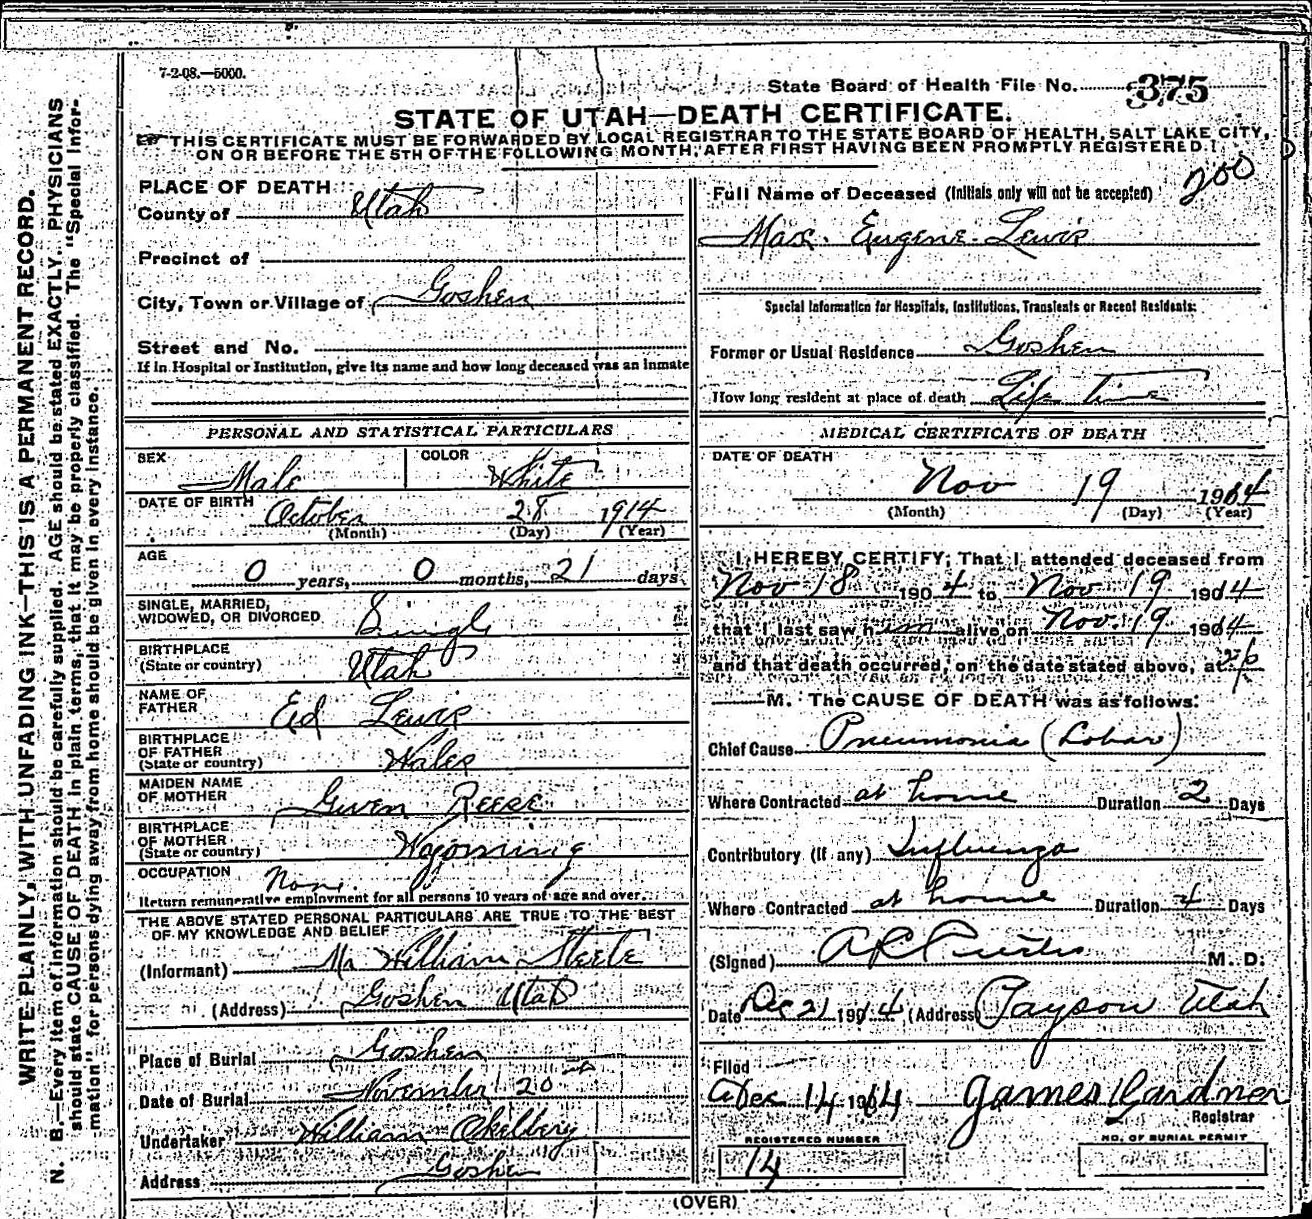 7-2-08.—5000.
State Board of Health File No. 375
STATE OF UTAH—DEATH CERTIFICATE.
THIS CERTIFICATE MUST BE FORWARDED BY LOCAL REGISTRAR TO THE STATE BOARD OF HEALTH, SALT LAKE CITY,
ON OR BEFORE THE 5TH OF THE FOLLOWING MONTH, AFTER FIRST HAVING BEEN PROMPTLY REGISTERED.
200
WRITE PLAINLY, WITH UNFADING INK—THIS IS A PERMANENT RECORD.
N. B.—Every item of information should be carefully supplied. AGE should be stated EXACTLY. PHYSICIANS
should state CAUSE OF DEATH in plain terms, that it may be properly classified. The "Special Infor-
mation" for persons dying away from home should be given in every instance.
PLACE OF DEATH
County of Utah
Precinct of
City, Town or Village of Goshen
Street and No.
If in Hospital or Institution, give its name and how long deceased was an inmate
PERSONAL AND STATISTICAL PARTICULARS
SEX Male
COLOR White
DATE OF BIRTH October 28 1914
(Month) (Day) (Year)
AGE
0 years, 0 months, 21 days
SINGLE, MARRIED,
WIDOWED, OR DIVORCED Single
BIRTHPLACE
(State or country) Utah
NAME OF
FATHER Ed Lewis
BIRTHPLACE
OF FATHER
(State or country) Wales
MAIDEN NAME
OF MOTHER Gwen Reese
BIRTHPLACE
OF MOTHER
(State or country) Wyoming
OCCUPATION None.
Return remunerative employment for all persons 10 years of age and over.
THE ABOVE STATED PERSONAL PARTICULARS ARE TRUE TO THE BEST
OF MY KNOWLEDGE AND BELIEF
(Informant) Mr William Steele
(Address) Goshen Utah
Place of Burial Goshen
Date of Burial November 20th
Undertaker William Okelberry
Address Goshen
Full Name of Deceased (Initials only will not be accepted)
Max. Eugene Lewis
Special Information for Hospitals, Institutions, Transients or Recent Residents:
Former or Usual Residence Goshen
How long resident at place of death Life Time
MEDICAL CERTIFICATE OF DEATH
DATE OF DEATH
Nov 19 1914
(Month) (Day) (Year)
I HEREBY CERTIFY, That I attended deceased from
Nov 18 1904 to Nov 19 1914
that I last saw him alive on Nov. 19 1914
and that death occurred, on the date stated above, at
M. The CAUSE OF DEATH was as follows:
Chief Cause Pneumonia (Lobar)
Where Contracted at home Duration 2 Days
Contributory (if any) Influenza
Where Contracted at home Duration 4 Days
(Signed) A R Curtis M. D.
Date Dec 21 1914 (Address) Payson Utah
Filed
Dec 14 1914 James Gardner
Registrar
REGISTERED NUMBER
14
NO. OF BURIAL PERMIT
(OVER)